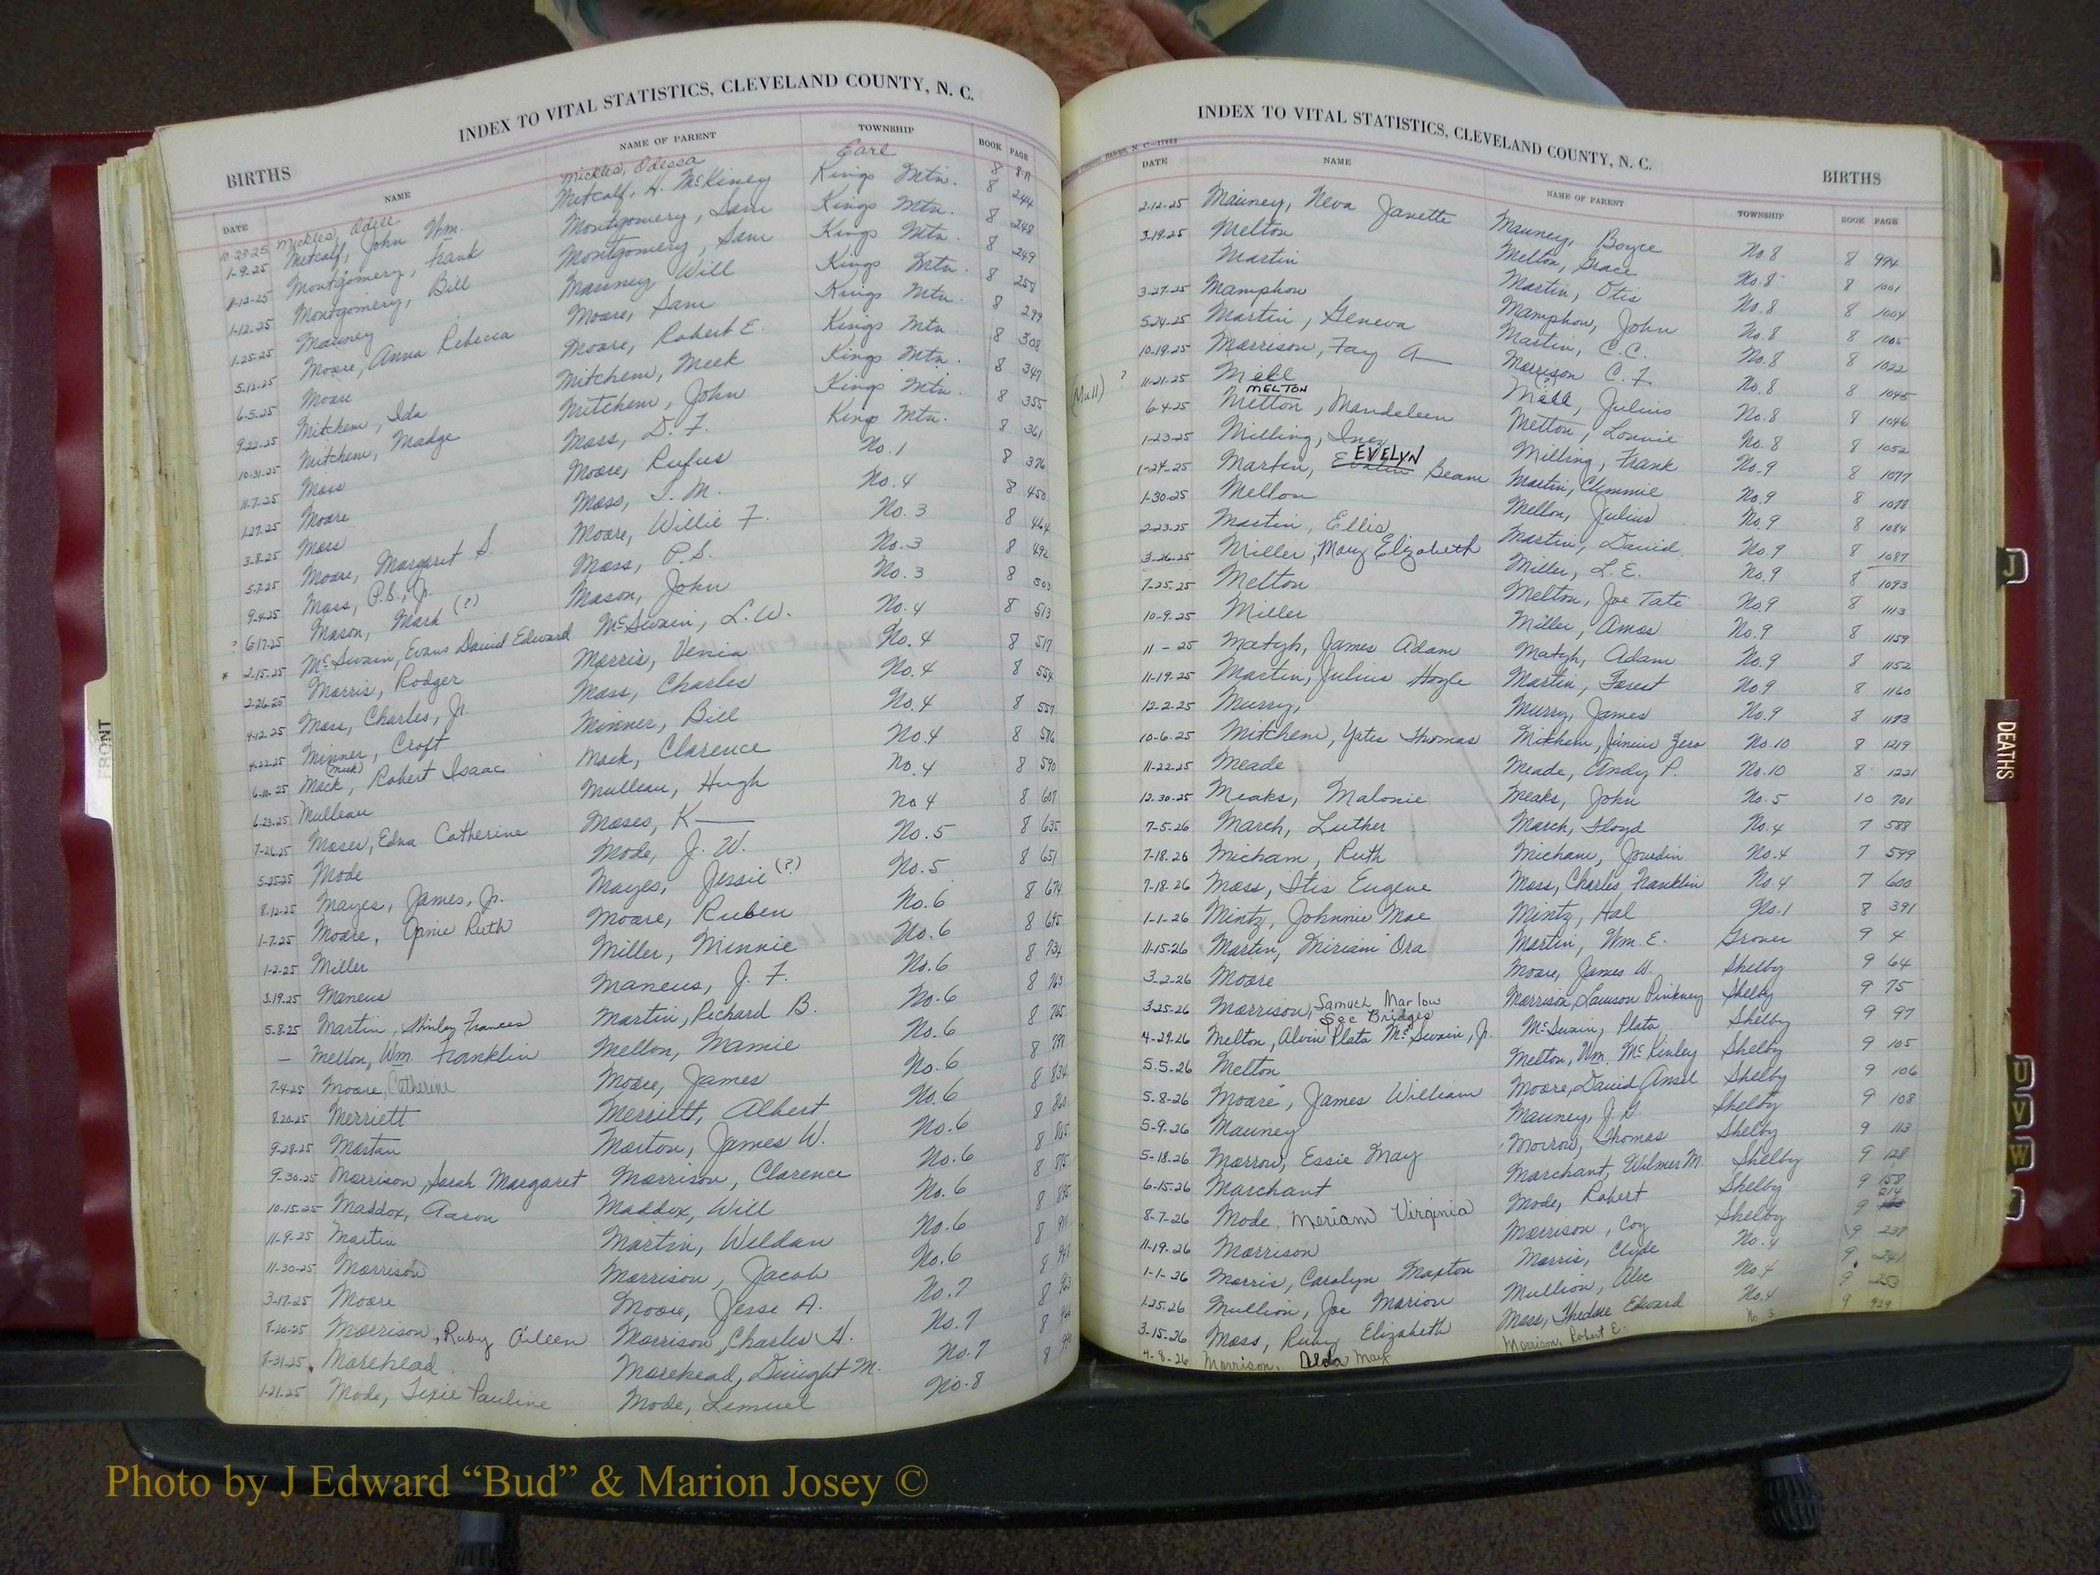 INDEX TO VITAL STATISTICS, CLEVELAND COUNTY, N. C.
BIRTHS
DATE NAME NAME OF PARENT TOWNSHIP BOOK PAGE
10-23-25 Mickles, Odell Mickles, Odessa Earl 8 811
1-9-25 Metcalf, John Wm. Metcalf, H. McKiney Kings Mtn. 8 244
1-12-25 Montgomery, Frank Montgomery, Sam Kings Mtn. 8 248
1-12-25 Montgomery, Bill Montgomery, Sam Kings Mtn. 8 249
1-25-25 Mauney Mauney Will Kings Mtn. 8
5-12-25 Moore, Anna Rebecca Moore, Sam Kings Mtn. 8 299
6-5-25 Moore Moore, Robert E. Kings Mtn. 8 308
9-22-25 Mitchem, Ida Mitchem, Meek Kings Mtn. 8 347
10-31-25 Mitchem, Madge Mitchem, John Kings Mtn. 8 355
11-7-25 Moss Moss, D. F. Kings Mtn. 8 361
1-27-25 Moore Moore, Rufus No. 1 8 376
3-8-25 Moss Moss, J. M. No. 4 8 450
5-7-25 Moore, Margaret S. Moore, Willie F. No. 3 8 464
9-4-25 Moss, P.S., Jr. Moss, P.S. No. 3 8 492
? 6-17-25 Mason, Mark (?) Mason, John No. 3 8 503
* 2-15-25 McSwain, Evans David Edward McSwain, L. W. No. 4 8 513
2-26-25 Morris, Rodger Morris, Venia No. 4 8 517
4-12-25 Moss, Charles, Jr. Moss, Charles No. 4 8 554
4-22-25 Minner, Croft Minner, Bill No. 4 8 557
(Meek)
6-10-25 Mack, Robert Isaac Mack, Clarence No. 4 8 586
6-23-25 Mulleau Mulleau, Hugh No. 4 8 590
7-26-25 Moses, Edna Catherine Moses, K— No 4 8 607
5-25-25 Mode Mode, J. W. No. 5 8 635
8-12-25 Mayes, James, Jr. Mayes, Jessie (?) No. 5 8 651
1-7-25 Moore, Janie Ruth Moore, Ruben No. 6 8 674
1-2-25 Miller Miller, Minnie No. 6 8 695
3-19-25 Maneus Maneus, J. F. No. 6 8 734
5-8-25 Martin, Shirley Frances Martin, Richard B. No. 6 8 763
— Mellon, Wm. Franklin Mellon, Mamie No. 6 8 765
7-4-25 Moore, Catherine Moore, James No. 6 8
8-20-25 Merriett Merriett, Albert No. 6 8 834
9-28-25 Morton Morton, James W. No. 6 8
9-30-25 Morrison, Sarah Margaret Morrison, Clarence No. 6 8
10-15-25 Maddox, Aaron Maddox, Will No. 6 8
11-9-25 Martin Martin, Weldon No. 6 8
11-30-25 Morrison Morrison, Jacob No. 6 8
3-17-25 Moore Moore, Jesse A. No. 7 8
8-20-25 Morrison, Ruby Aileen Morrison, Charles H. No. 7 8
8-31-25 Morehead Morehead, Dwight M. No. 7 8
1-21-25 Mode, Texie Pauline Mode, Lemuel No. 8
INDEX TO VITAL STATISTICS, CLEVELAND COUNTY, N. C.
BIRTHS
DATE NAME NAME OF PARENT TOWNSHIP BOOK PAGE
2-12-25 Mauney, Neva Janette Mauney, Boyce No. 8 8 994
3-19-25 Melton Melton, Grace No. 8 8 1001
Martin Martin, Otis No. 8 8 1004
3-27-25 Mamphow Mamphow, John No. 8 8
5-24-25 Martin, Geneva Martin, C.C. No. 8 8 1022
10-19-25 Morrison, Fay A— Morrison C. F. No. 8 8 1045
(Mull) ? 11-21-25 Mell Mell, (?) Julius No. 8 8 1046
MELTON
6-4-25 Melton, Mandeleen Melton, Lonnie No. 8 8 1052
1-23-25 Milling, Inez Milling, Frank No. 9 8 1077
EVELYN
1-24-25 Martin, Beam Martin, Clemmie No. 9 8 1078
1-30-25 Mellon Mellon, Julius No. 9 8 1084
2-23-25 Martin, Ellis Martin, David No. 9 8 1087
3-26-25 Miller, Mary Elizabeth Miller, L. E. No. 9 8 1093
7-25-25 Melton Melton, Joe Tate No. 9 8 1113
10-9-25 Miller Miller, Amos No. 9 8 1159
11 - 25 Matyh, James Adam Matyh, Adam No. 9 8 1152
11-19-25 Martin, Julius Hoyle Martin, Forest No 9 8 1160
12-2-25 Murry, Murry, James No. 9 8 1173
10-6-25 Mitchem, Yates Thomas Mitchem, Junius Zero No. 10 8 1219
11-22-25 Meade Meade, Andy P. No. 10 8 1221
12-30-25 Meaks, Malonie Meaks, John No. 5 10 701
7-5-26 March, Luther March, Floyd No. 4 7 588
7-18-26 Micham, Ruth Micham, Jourdin No. 4 7 599
7-18-26 Moss, Otis Eugene Moss, Charles Franklin No. 4 7 600
1-1-26 Mintz, Johnnie Mae Mintz, Hal No. 1 8 391
11-15-26 Martin, Miriam Ora Martin, Wm. E. Grover 9 4
3-2-26 Moore Moore, James W. Shelby 9 64
3-25-26 Morrison, Samuel Marlow Morrison, Lawson Pinkney Shelby 9 75
See Bridges
4-29-26 Melton, Alvin Plato McSwain, Jr. McSwain, Plato Shelby 9 97
5-5-26 Melton Melton, Wm. McKinley Shelby 9 105
5-8-26 Moore, James William Moore, David Ansel Shelby 9 106
5-9-26 Mauney Mauney, J. G. Shelby 9 108
5-18-26 Morrow, Essie May Morrow, Thomas Shelby 9 113
6-15-26 Marchant Marchant, Wilmer M. Shelby 9 128
8-7-26 Mode, Meriam Virginia Mode, Robert Shelby 9 158
11-19-26 Morrison Morrison, Coy Shelby 9 214
1-1-26 Morris, Carolyn Maxton Morris, Clyde No. 4 9 237
1-25-26 Mullion, Joe Marion Mullion, Alec No. 4 9 241
3-15-26 Moss, Ruby Elizabeth Moss, Thedore Edward No. 4 9 253
4-8-26 Morrison, Alda Mae Morrison, Robert E. No 3 9 429
FRONT
J
DEATHS
U
V
W
Photo by J Edward “Bud” & Marion Josey ©